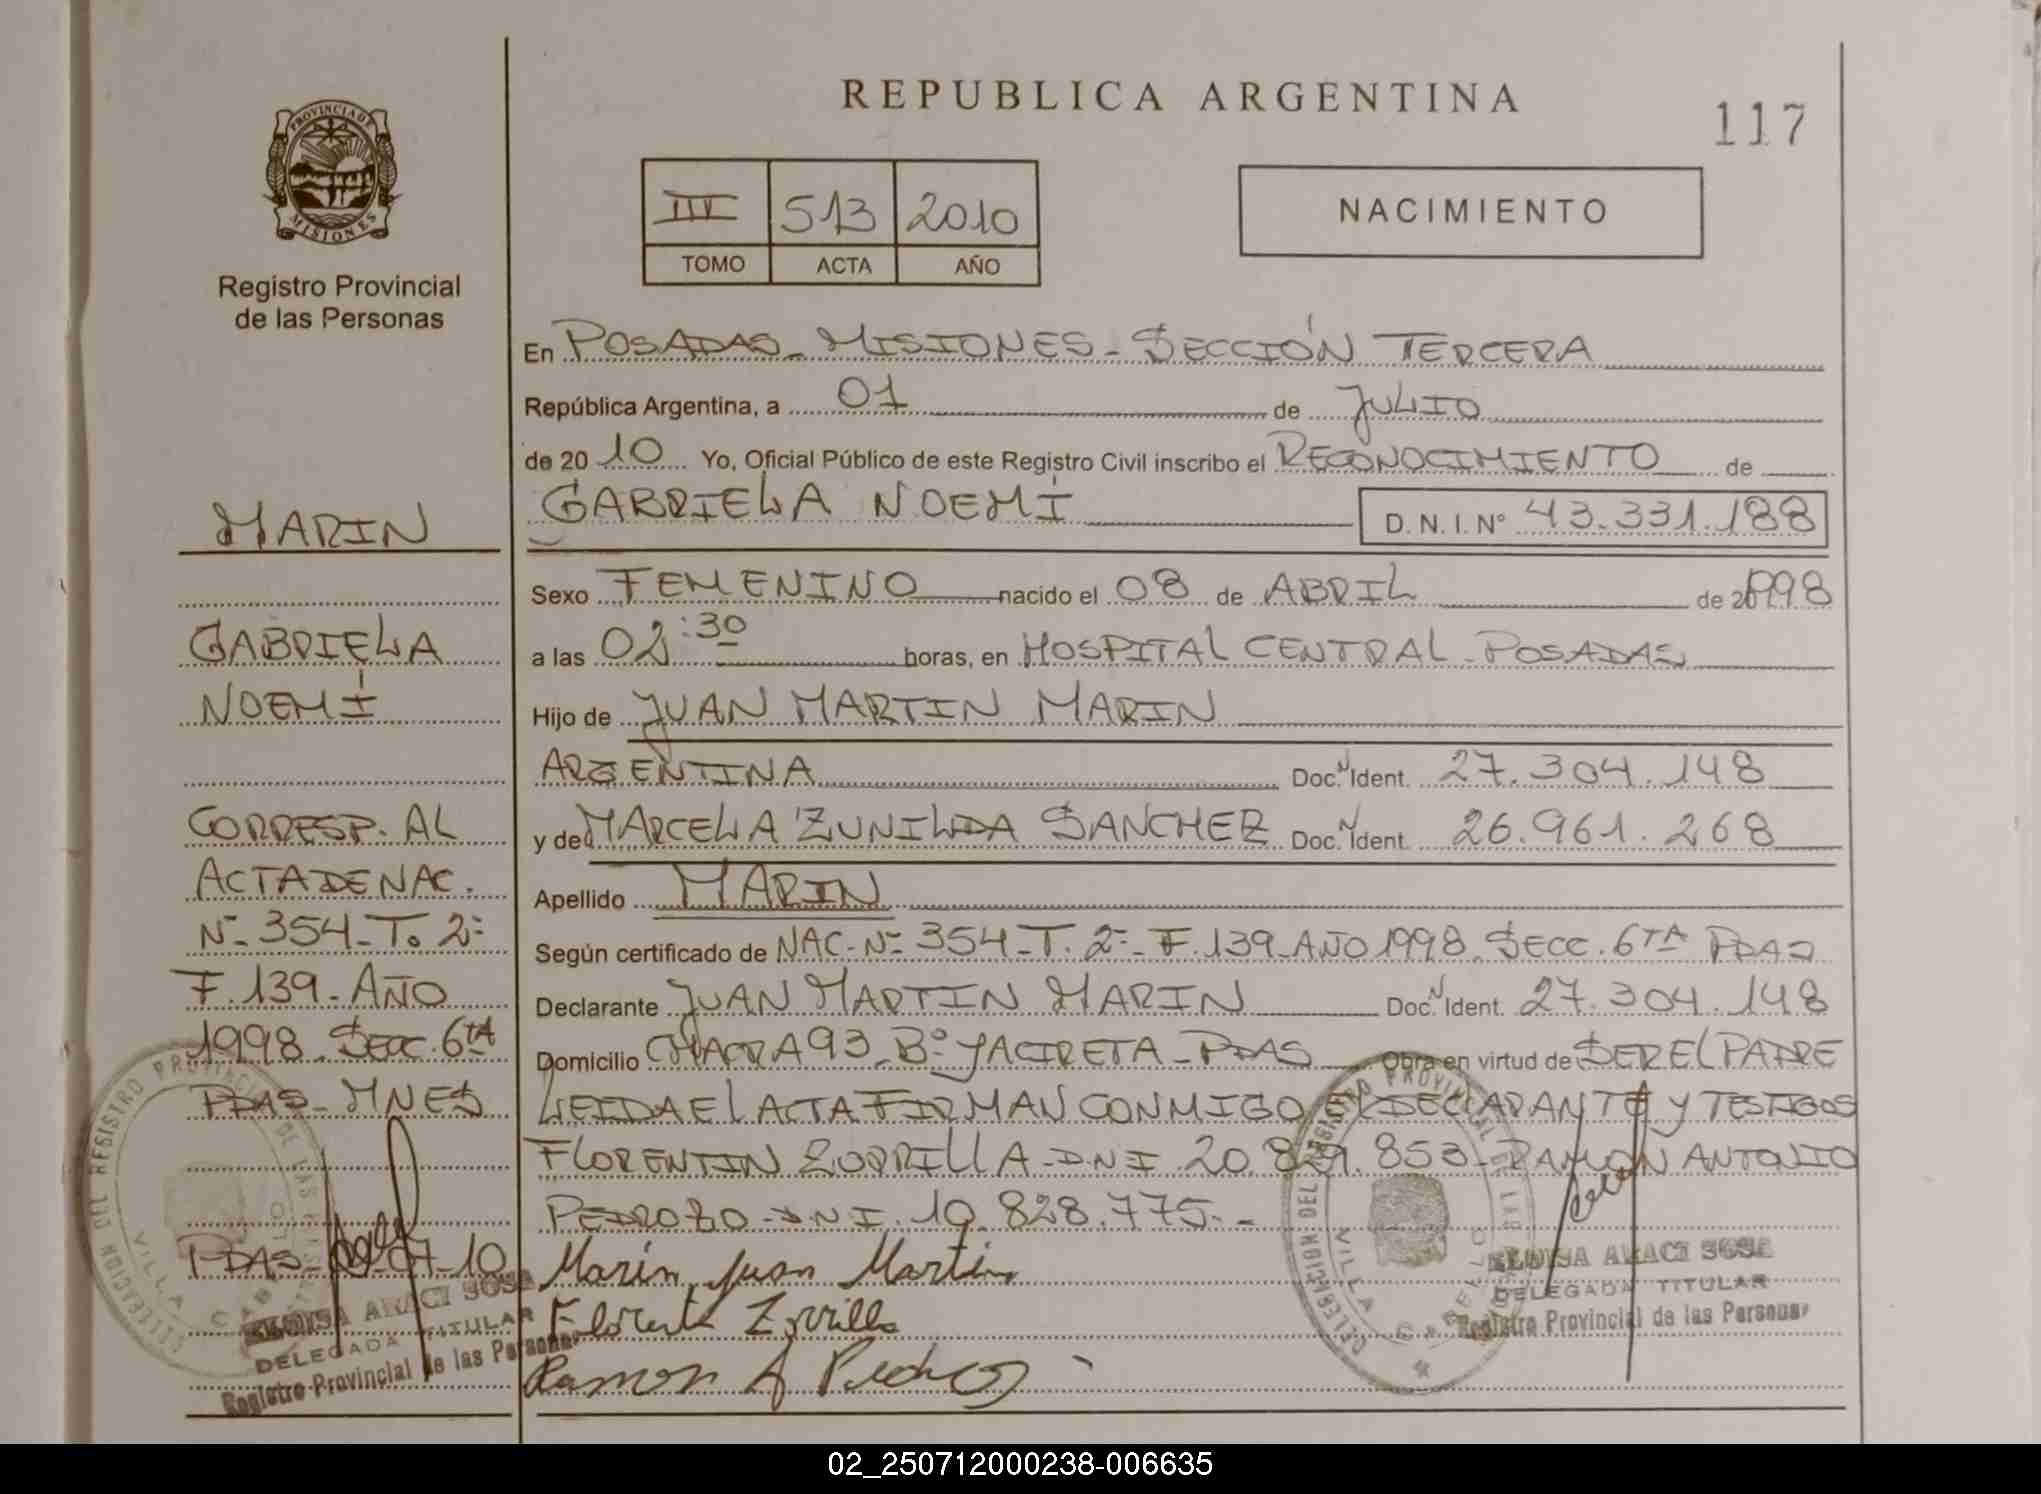 REPUBLICA ARGENTINA
117
PROVINCIA DE
MISIONES
Registro Provincial
de las Personas
III 513 2010
TOMO ACTA AÑO
NACIMIENTO
En POSADAS - MISIONES - SECCIÓN TERCERA
República Argentina, a 01 de JULIO
de 20 10 Yo, Oficial Público de este Registro Civil inscribo el RECONOCIMIENTO de
GABRIELA NOEMÍ D. N. I. N° 43.331.188
Sexo FEMENINO nacido el 08 de ABRIL de 1998
a las 02:30 horas, en HOSPITAL CENTRAL - POSADAS
Hijo de JUAN MARTIN MARIN
ARGENTINA Doc. N Ident. 27.304.148
y de MARCELA ZUNILDA SANCHEZ Doc. N Ident. 26.961.268
Apellido MARIN
Según certificado de NAC. N° 354 - T. 2° - F. 139 - AÑO 1998. SECC. 6TA PDAS
Declarante JUAN MARTIN MARIN Doc. N Ident. 27.304.148
Domicilio CHACRA 93 - B° YACIRETA - PDAS Obra en virtud de SER EL PADRE
LEIDA EL ACTA FIRMAN CONMIGO EL DECLARANTE Y TESTIGOS
FLORENTIN ZORRILLA - DNI 20.829.853 - RAMON ANTONIO
PEDROZO - DNI. 10.828.775. -
Marin Juan Martin
Ramon A Pedrozo
MARIN
GABRIELA
NOEMÍ
CORRESP. AL
ACTA DE NAC.
N° 354 - T. 2°
F. 139 - AÑO
1998. SECC. 6TA
PDAS - MNES
PDAS - 07-10
DELEGACION DEL REGISTRO PROVINCIAL DE LAS PERSONAS
VILLA CABELLO
ELOISA ARACI SOSA
DELEGADA TITULAR
Registro Provincial de las Personas
DELEGACION DEL REGISTRO PROVINCIAL DE LAS PERSONAS
VILLA CABELLO
ELOISA ARACI SOSA
DELEGADA TITULAR
Registro Provincial de las Personas
02_250712000238-006635